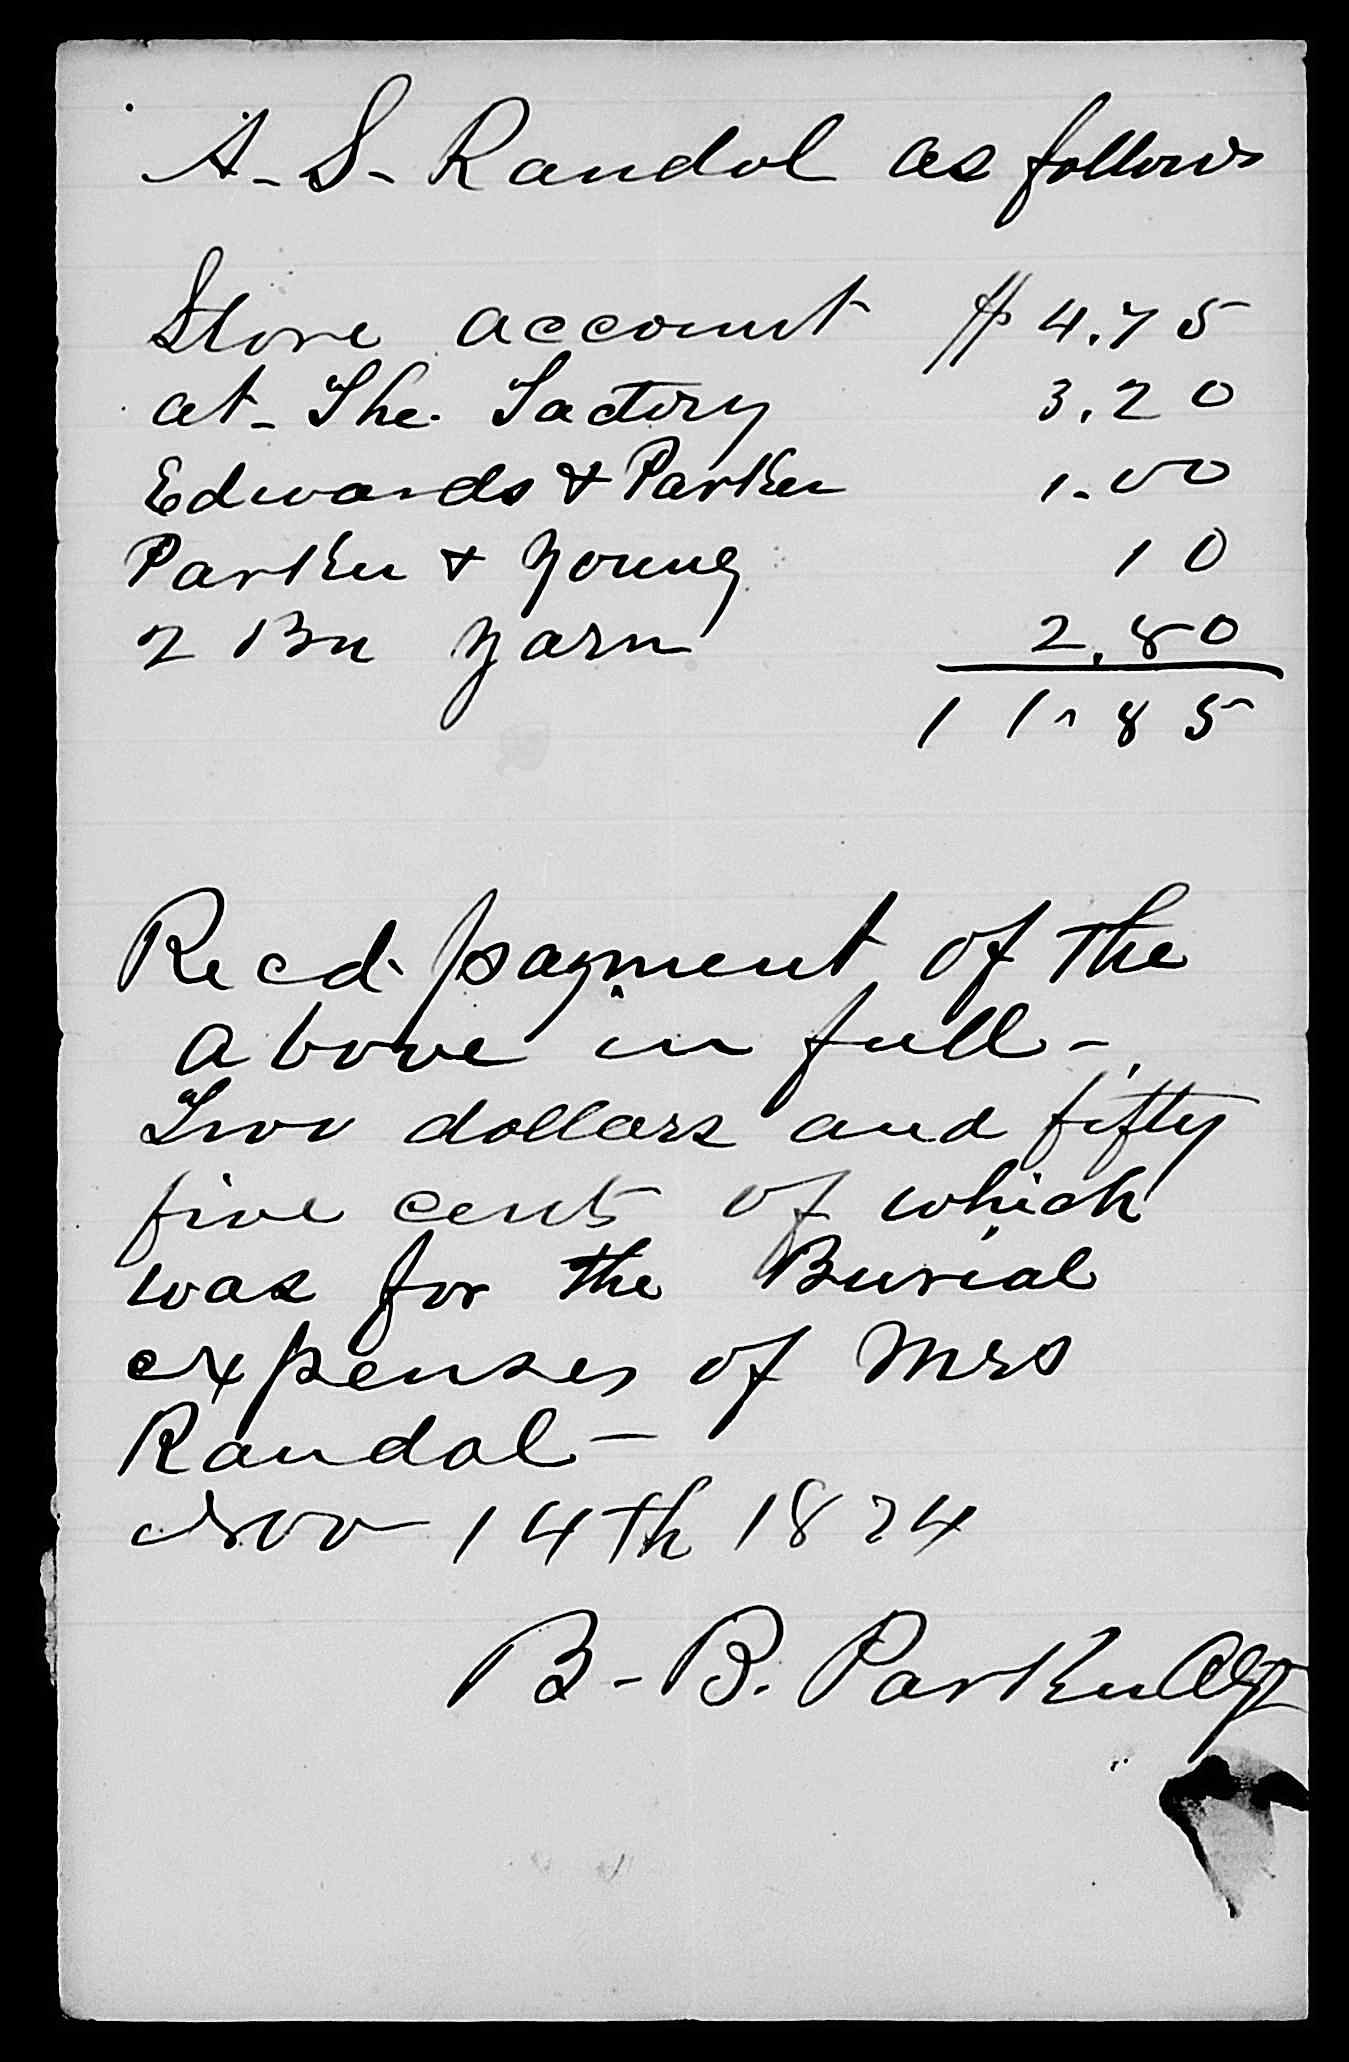 A. S. Randol as follows
Store account $ 4.75
at The Factory 3.20
Edwards & Parker 1.00
Parker & Young 10
2 Bu Yarn 2.80
11.85
Recd payment of the
above in full -
Two dollars and fifty
five cents of which
was for the Burial
expenses of Mrs
Randol -
Nov 14th 1874
B. B. Parker Agt